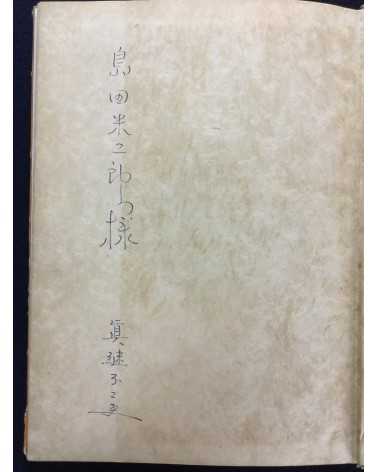 島田米二郎様
眞継不二夫